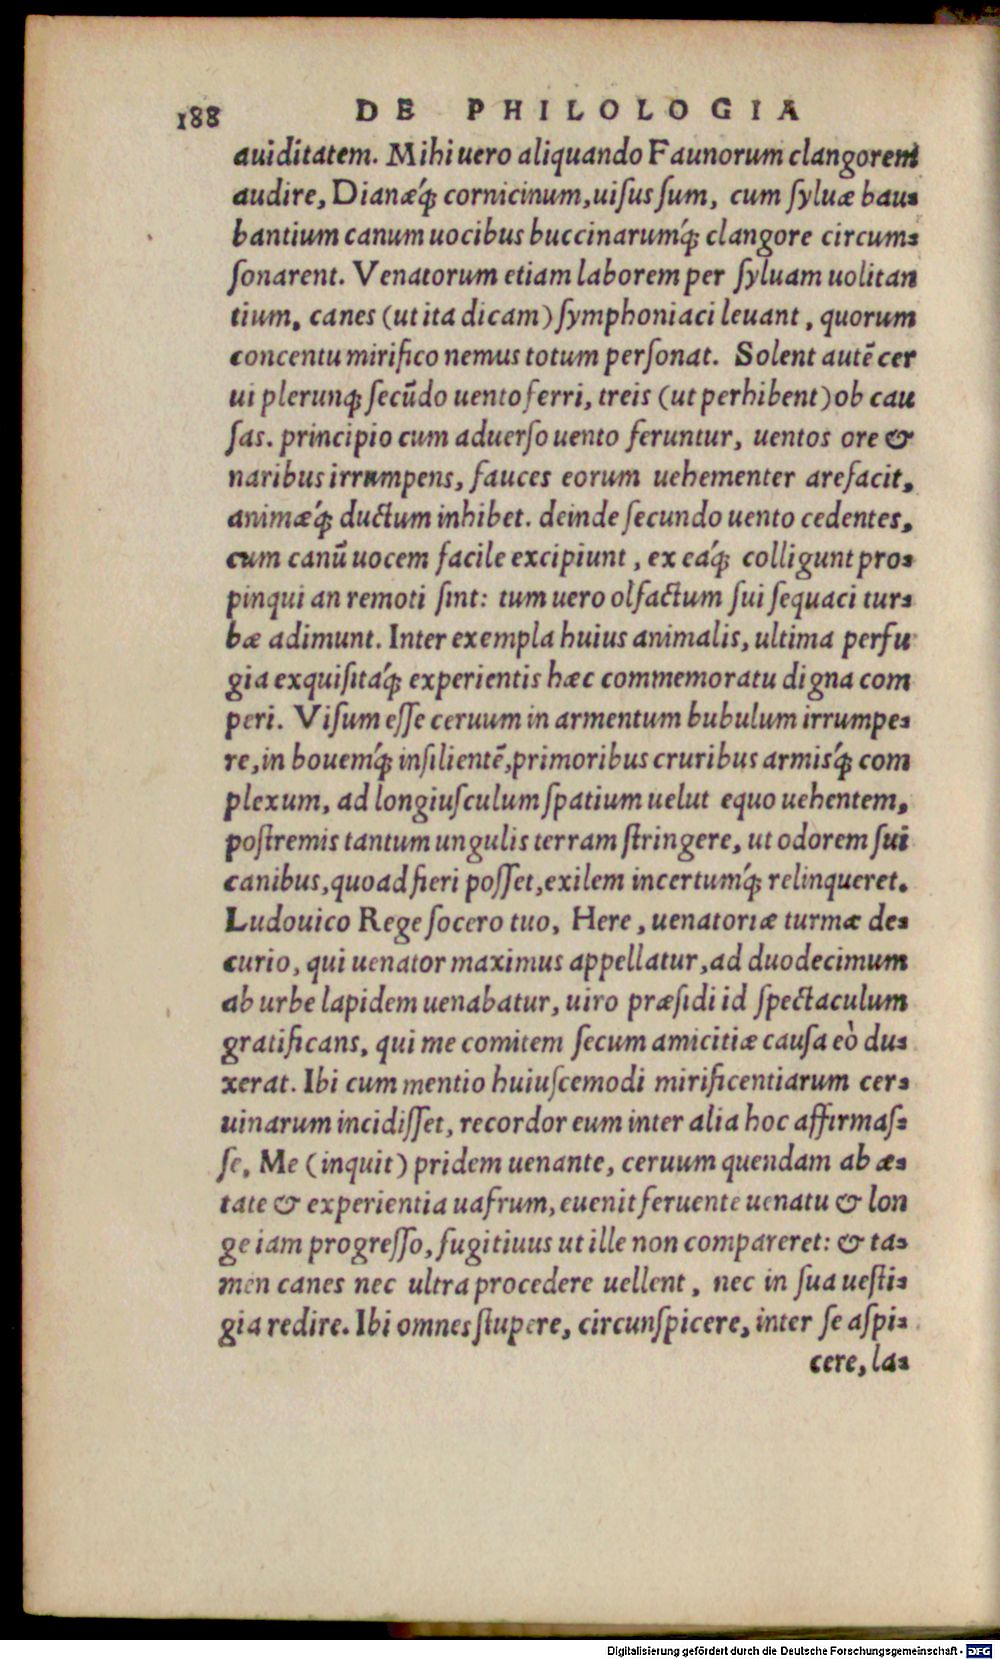 188 DE PHILOLOGIA
auiditatem. Mihi uero aliquando Faunorum clangorem
audire, Dianæq́ꝫ cornicinum, uiſus ſum, cum ſyluæ bau⸗
bantium canum uocibus buccinarumq́ꝫ clangore circum⸗
ſonarent. Venatorum etiam laborem per ſyluam uolitan
tium, canes (ut ita dicam) ſymphoniaci leuant, quorum
concentu mirifico nemus totum perſonat. Solent autē cer
ui plerunqꝫ ſecūdo uento ferri, treis (ut perhibent) ob cau
ſas. principio cum aduerſo uento feruntur, uentos ore &
naribus irrumpens, fauces eorum uehementer arefacit,
animæq́ꝫ ductum inhibet. deinde ſecundo uento cedentes,
cum canū uocem facile excipiunt, ex eáq́ꝫ colligunt pro⸗
pinqui an remoti ſint: tum uero olfactum ſui ſequaci tur⸗
bæ adimunt. Inter exempla huius animalis, ultima perfu
gia exquiſitáq́ꝫ experientis hæc commemoratu digna com
peri. Viſum eſſe ceruum in armentum bubulum irrumpe⸗
re, in bouemq́ꝫ inſilientē, primoribus cruribus armisq́ꝫ com
plexum, ad longiuſculum ſpatium uelut equo uehentem,
poſtremis tantum ungulis terram ſtringere, ut odorem ſui
canibus, quoad fieri poſſet, exilem incertumq́ꝫ relinqueret.
Ludouico Rege ſocero tuo, Here, uenatoriæ turmæ de⸗
curio, qui uenator maximus appellatur, ad duodecimum
ab urbe lapidem uenabatur, uiro præſidi id ſpectaculum
gratificans, qui me comitem ſecum amicitiæ cauſa eò du⸗
xerat. Ibi cum mentio huiuſcemodi mirificentiarum cer⸗
uinarum incidiſſet, recordor eum inter alia hoc affirmaſ⸗
ſe, Me (inquit) pridem uenante, ceruum quendam ab æ⸗
tate & experientia uafrum, euenit feruente uenatu & lon
ge iam progreſſo, fugitiuus ut ille non compareret: & ta⸗
men canes nec ultra procedere uellent, nec in ſua ueſti⸗
gia redire. Ibi omnes ſtupere, circunſpicere, inter ſe aſpi⸗
cere, la⸗
Digitalisierung gefördert durch die Deutsche Forschungsgemeinschaft - DFG